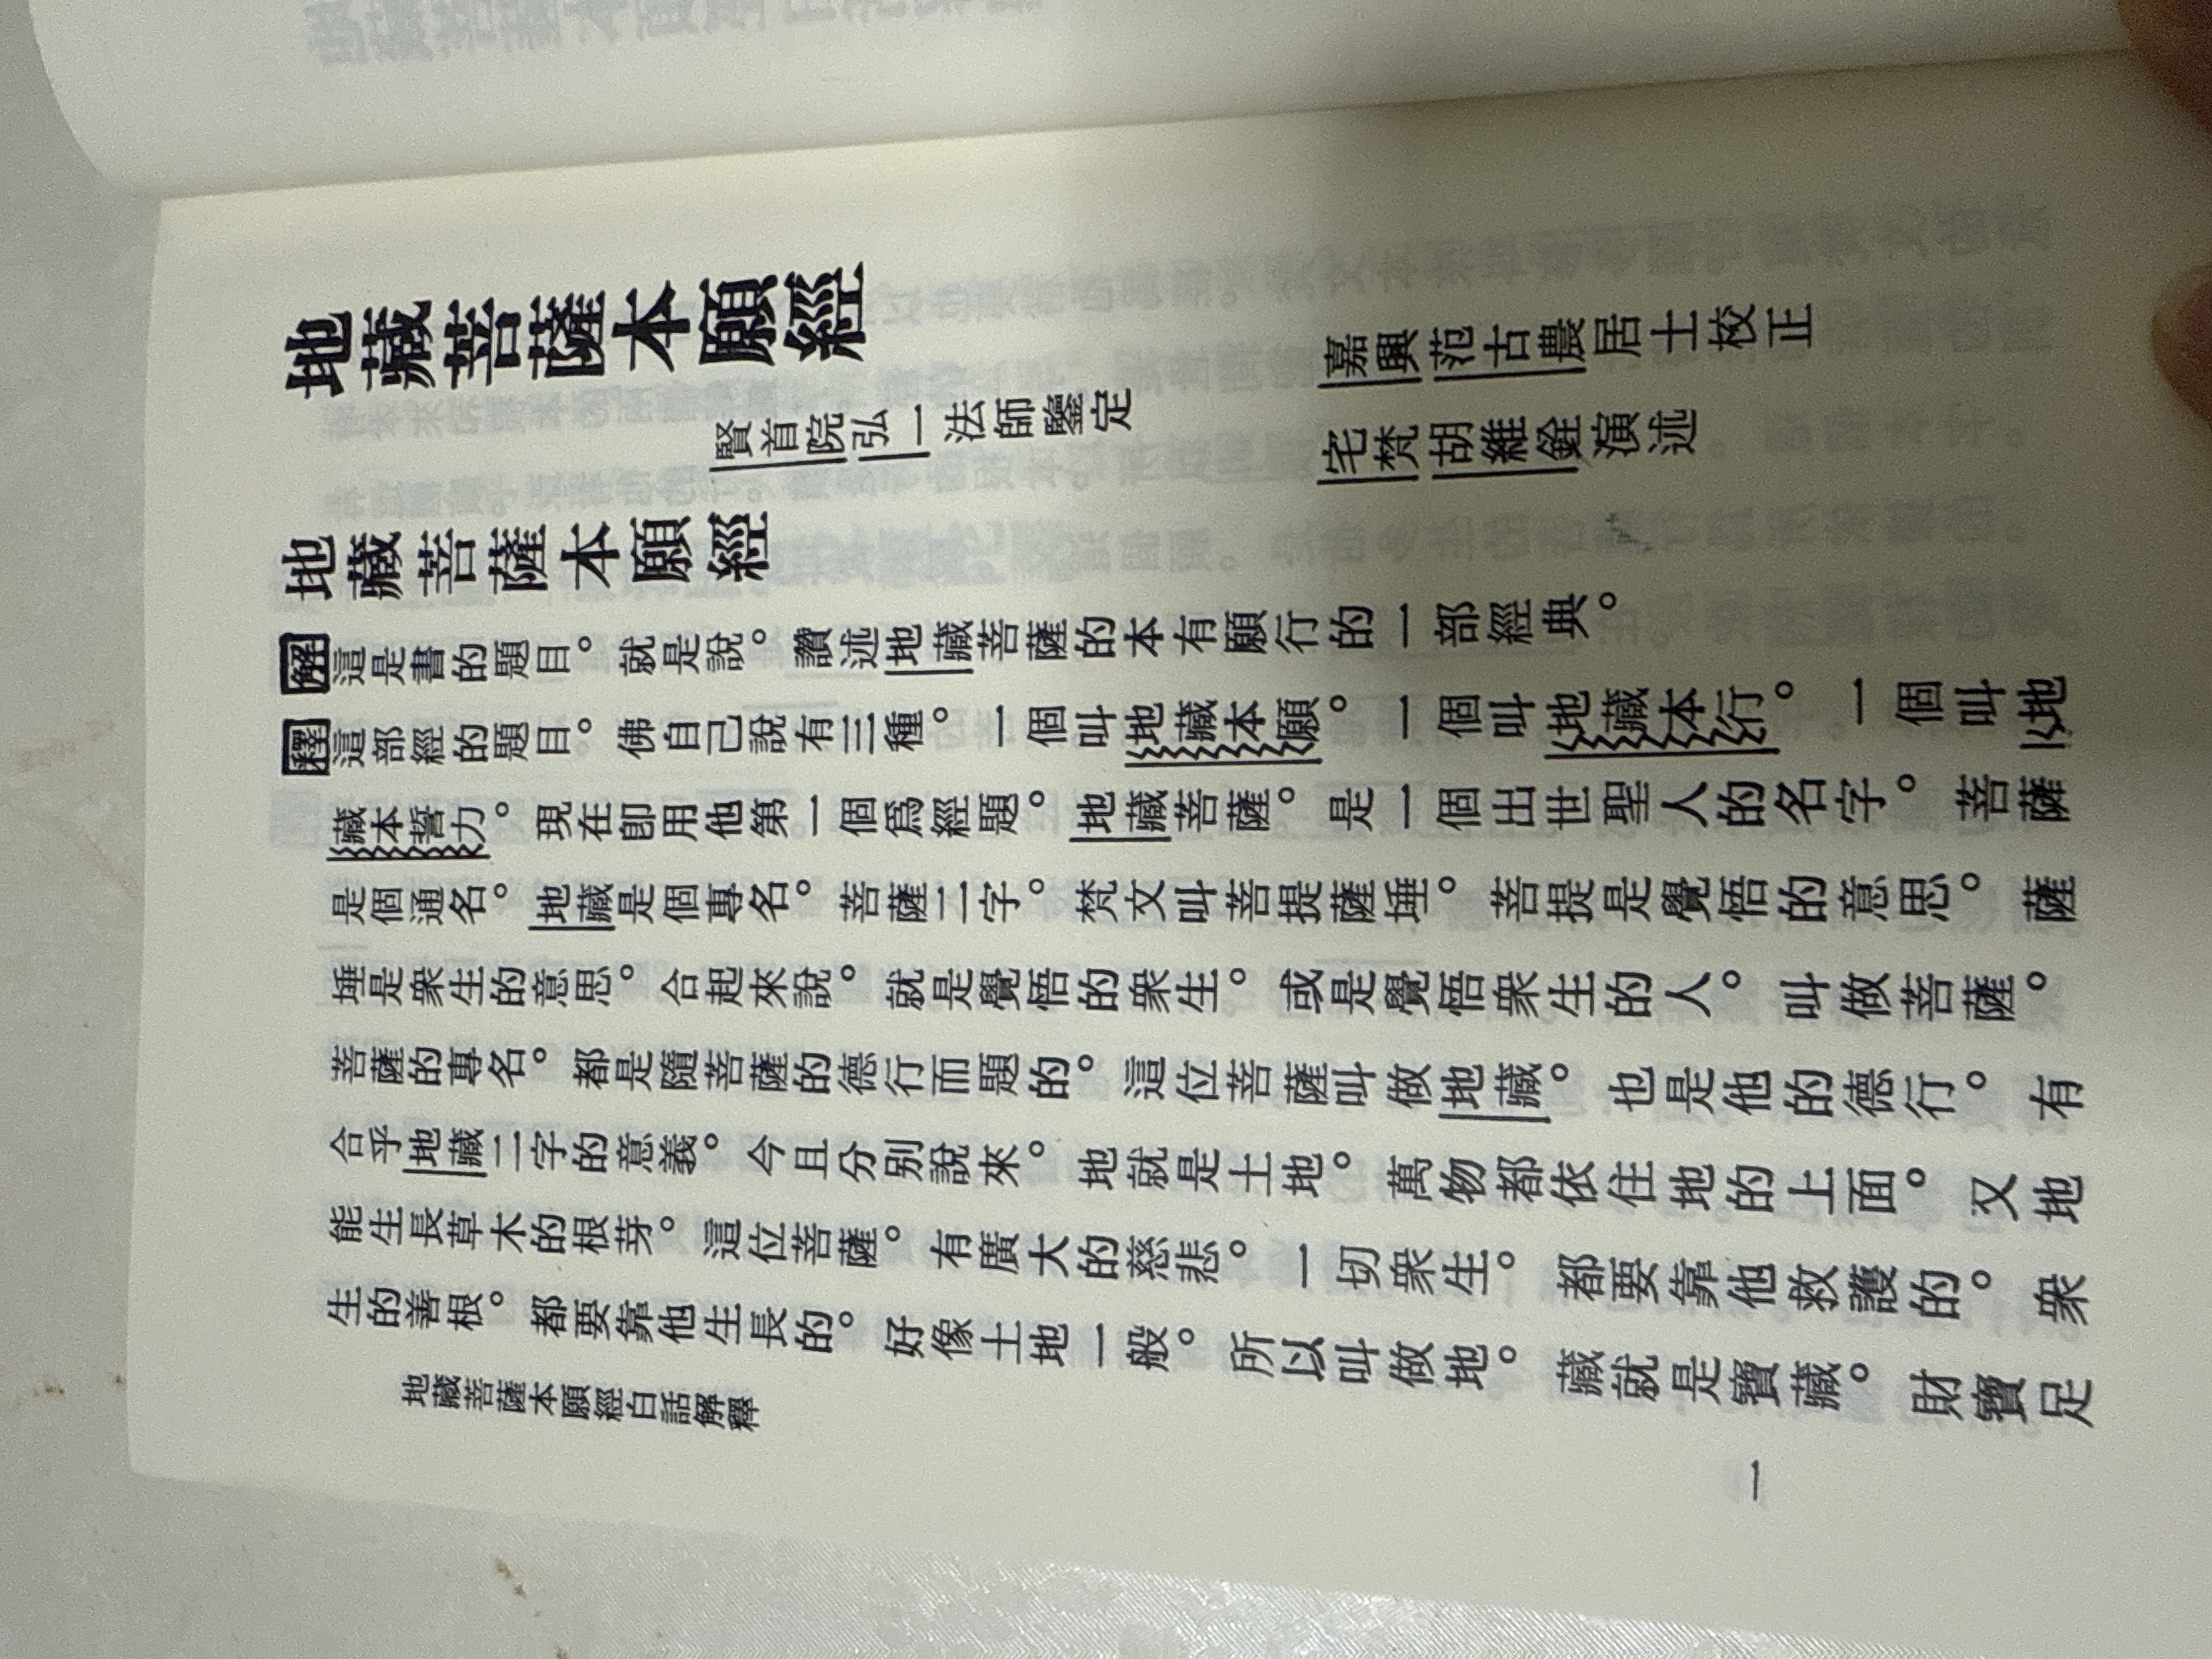 地藏菩薩本願經
賢首院弘一法師鑒定
嘉興范古農居士校正
宅梵胡維銓演述
地藏菩薩本願經
解這是書的題目。就是說。讚述地藏菩薩的本有願行的一部經典。
釋這部經的題目。佛自己說有三種。一個叫地藏本願。一個叫地藏本行。一個叫地
藏本誓力。現在卽用他第一個爲經題。地藏菩薩。是一個出世聖人的名字。菩薩
是個通名。地藏是個專名。菩薩二字。梵文叫菩提薩埵。菩提是覺悟的意思。薩
埵是衆生的意思。合起來說。就是覺悟的衆生。或是覺悟衆生的人。叫做菩薩。
菩薩的專名。都是隨菩薩的德行而題的。這位菩薩叫做地藏。也是他的德行。有
合乎地藏二字的意義。今且分別說來。地就是土地。萬物都依住地的上面。又地
能生長草木的根芽。這位菩薩。有廣大的慈悲。一切衆生。都要靠他救護的。衆
生的善根。都要靠他生長的。好像土地一般。所以叫做地。藏就是寶藏。財寶足
地藏菩薩本願經白話解釋
一